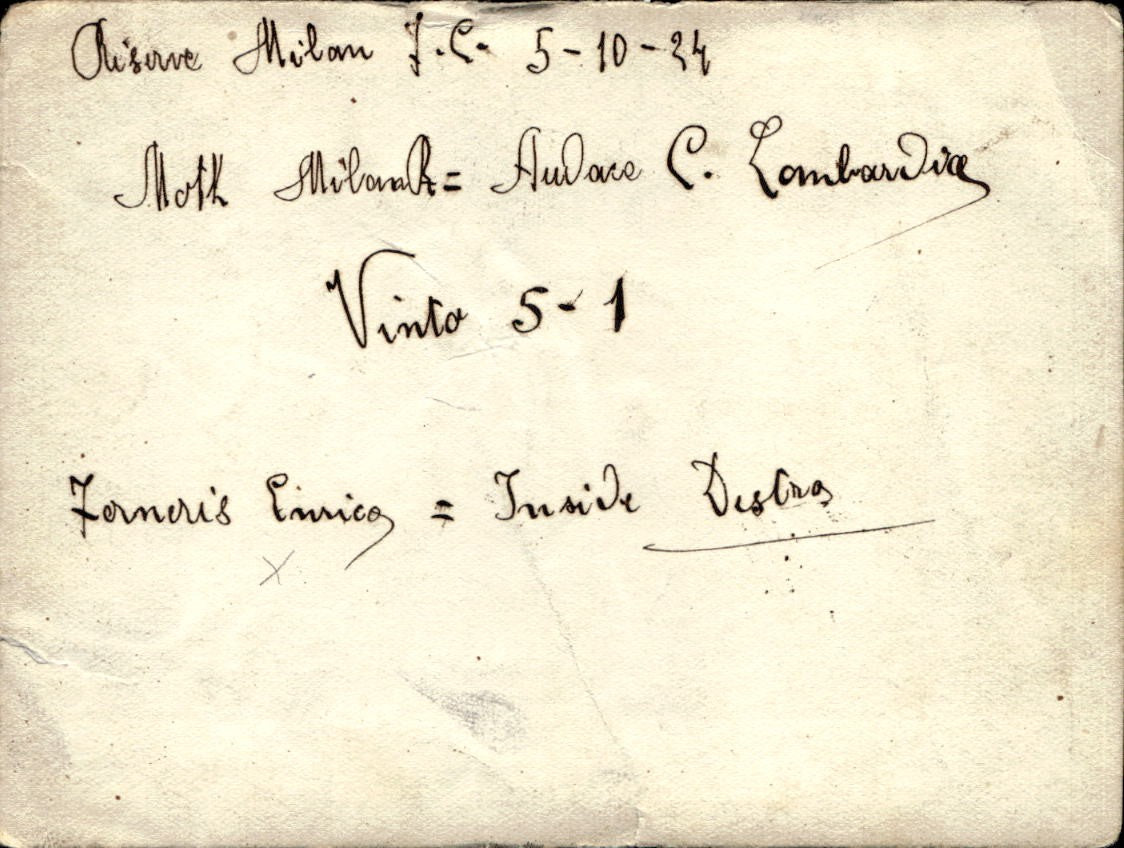 Riserve Milan F.C. 5-10-24
Moth Milan R = Audace C. Lombardia
Vinto 5-1
Forneris Enrico = Inside Destro